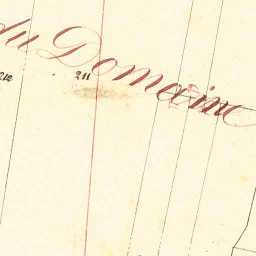 du Domaine
212
211